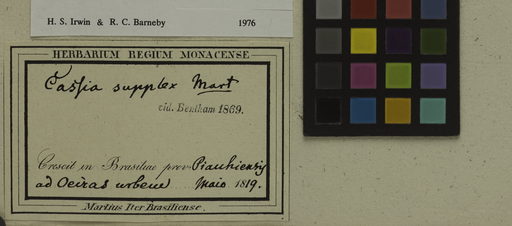 H. S. Irwin & R. C. Barneby 1976
HERBARIUM REGIUM MONACENSE
Cassia supplex Mart
vid. Bentham 1869.
Crescit in Brasiliae prov. Piauhiensis
ad Oeiras urbem Maio 1819.
Martius Iter Brasiliense.